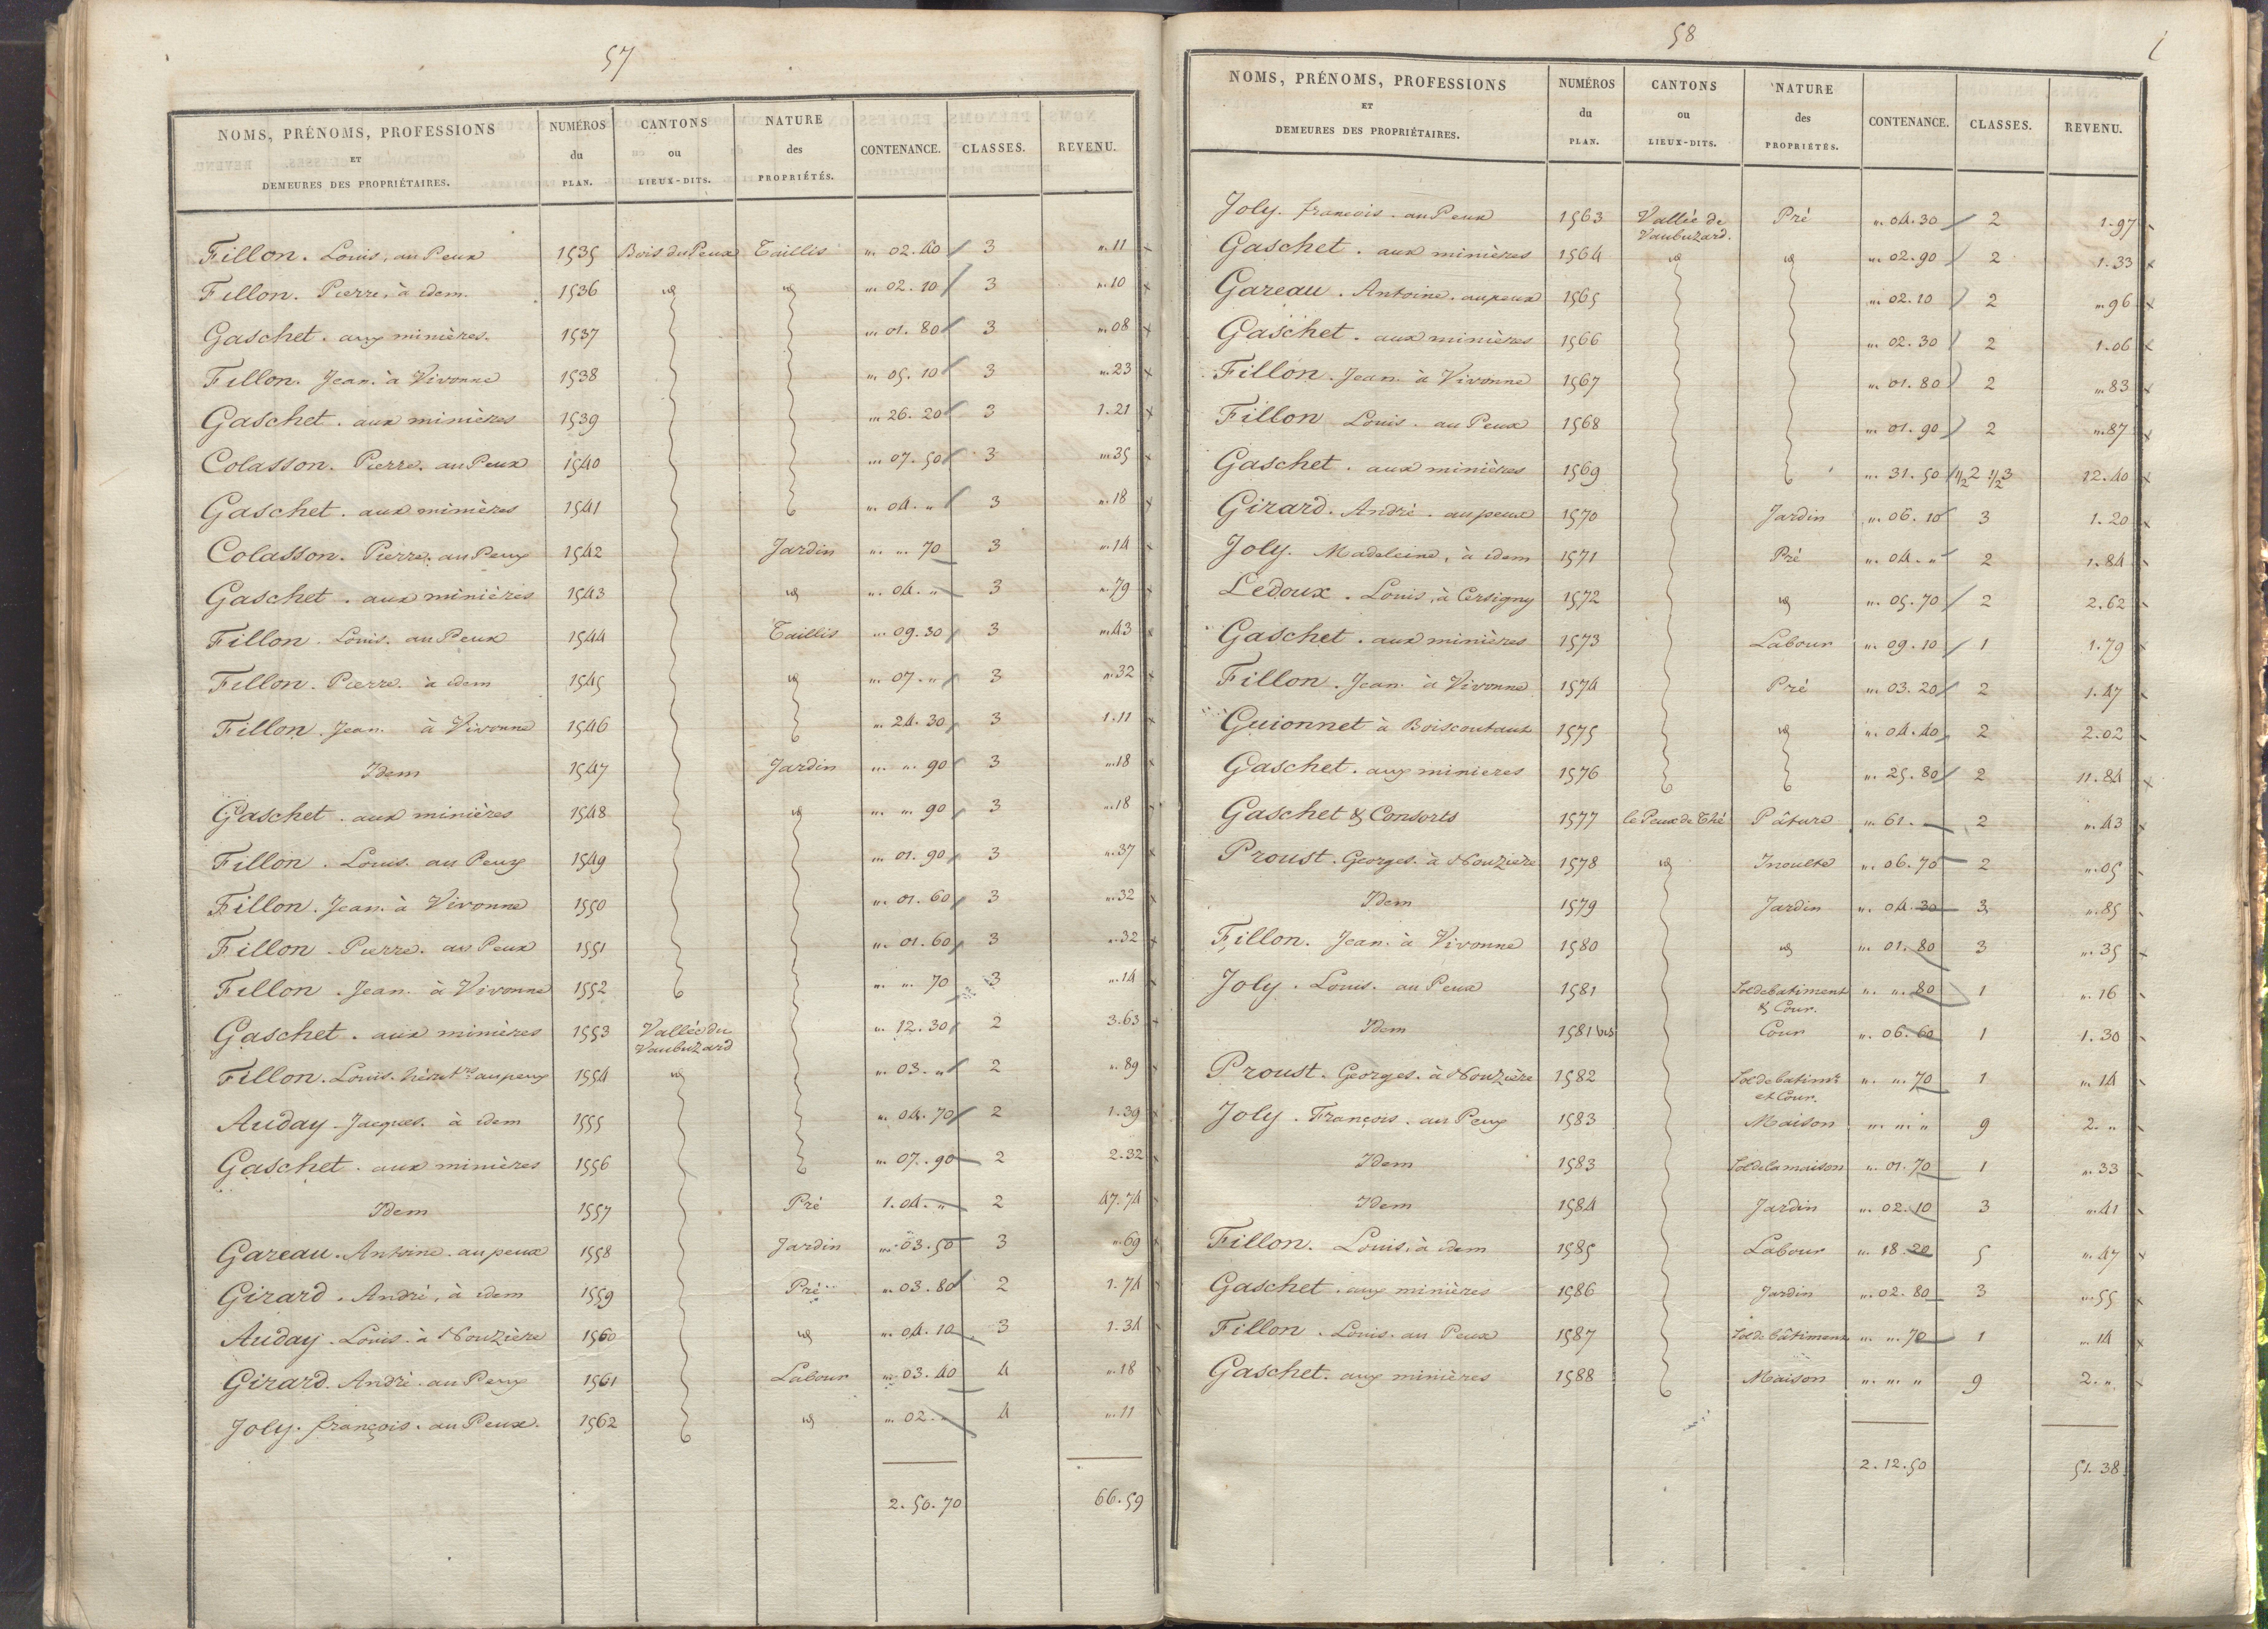 57
NOMS, PRÉNOMS, PROFESSIONS ET DEMEURES DES PROPRIÉTAIRES. NUMÉROS du PLAN. CANTONS ou LIEUX-DITS. NATURE des PROPRIÉTÉS. CONTENANCE. CLASSES. REVENU.
Fillon. Louis, au Peux 1535 Bois du Peux Taillis " 02. 40 3 ". 11
Fillon. Pierre, à idem. 1536 id id " 02. 10 3 ". 10
Gaschet. aux minières. 1537 " 01. 80 3 ". 08
Fillon. Jean. à Vivonne 1538 " 05. 10 3 ". 23
Gaschet. aux minières 1539 " 26. 20 3 1. 21
Colasson. Pierre. au Peux 1540 " 07. 50 3 ". 35
Gaschet. aux minières 1541 " 04. " 3 ". 18
Colasson. Pierre. au Peux 1542 Jardin " " 70 3 ". 14
Gaschet. aux minières 1543 id " 04. " 3 ". 79
Fillon. Louis. au Peux 1544 Taillis " 09. 30 3 ". 43
Fillon. Pierre. à idem 1545 id " 07. " 3 ". 32
Fillon. Jean. à Vivonne 1546 " 24. 30 3 1. 11
Idem 1547 Jardin " " 90 3 ". 18
Gaschet. aux minières 1548 id " " 90 3 ". 18
Fillon. Louis. au Peux 1549 " 01. 90 3 ". 37
Fillon. Jean. à Vivonne 1550 " 01. 60 3 ". 32
Fillon. Pierre. au Peux 1551 " 01. 60 3 ". 32
Fillon. Jean. à Vivonne 1552 " " 70 3 ". 14
Gaschet. aux minières 1553 Vallée du " 12. 30 2 3. 63
Vaubuzard
Fillon. Louis. hérit.rs au peux 1554 id " 03. " 2 ". 89
Auday. Jacques. à idem 1555 " 04. 70 2 1. 39
Gaschet. aux minières 1556 " 07. 90 2 2. 32
Idem 1557 Pré 1. 04. " 2 47. 74
Gareau. Antoine. au peux 1558 Jardin " 03. 50 3 ". 69
Girard. André, à idem 1559 Pré " 03. 80 2 1. 74
Auday. Louis. à Nouzière 1560 id " 04. 10 3 1. 34
Girard. André. au Peux 1561 Labour " 03. 40 4 ". 18
Joly. françois. au Peux. 1562 id " 02. " 4 ". 11
2. 50. 70 66. 59
58
NOMS, PRÉNOMS, PROFESSIONS ET DEMEURES DES PROPRIÉTAIRES. NUMÉROS du PLAN. CANTONS ou LIEUX-DITS. NATURE des PROPRIÉTÉS. CONTENANCE. CLASSES. REVENU.
Joly. francois. au Peux 1563 Vallée de Pré " 04. 30 2 1. 97
Vaubuzard.
Gaschet. aux minières 1564 id id " 02. 90 2 1. 33
Gareau. Antoine. au peux 1565 " 02. 10 2 ". 96
Gaschet. aux minières 1566 " 02. 30 2 1. 06
Fillon. Jean. à Vivonne 1567 " 01. 80 2 ". 83
Fillon Louis. au Peux 1568 " 01. 90 2 ". 87
Gaschet. aux minières 1569 " 31. 50 1/2 2 1/2 3 12. 40
Girard. André. au peux 1570 Jardin " 06. 10 3 1. 20
Joly. Madeleine, à idem 1571 Pré " 04. " 2 1. 84
Ledoux. Louis, à Cersigny 1572 id " 05. 70 2 2. 62
Gaschet. aux minières 1573 Labour " 09. 10 1 1. 79
Fillon. Jean. à Vivonne 1574 Pré " 03. 20 2 1. 47
Guionnet à Boiscoutant 1575 id " 04. 40 2 2. 02
Gaschet. aux minieres 1576 " 25. 80 2 11. 84
Gaschet & Consorts 1577 le Peux de Thé Pâture " 61. 2 ". 43
Proust. Georges. à Nouzière 1578 id Inculte " 06. 70 2 ". 05
Idem 1579 Jardin " 04. 30 3 ". 85
Fillon. Jean. à Vivonne 1580 id " 01. 80 3 ". 35
Joly. Louis. au Peux 1581 Sol de batiment " " 80 1 ". 16
& Cour.
Idem 1581 bis Cour " 06. 60 1 1. 30
Proust. Georges. à Nouzière 1582 Sol de batimt. " " 70 1 ". 14
et Cour.
Joly. François. au Peux 1583 Maison " " " 9 2. "
Idem 1583 Sol de la maison " 01. 70 1 ". 33
Idem 1584 Jardin " 02. 10 3 ". 41
Fillon. Louis, à idem 1585 Labour " 18. 20 5 ". 47
Gaschet. aux minières 1586 Jardin " 02. 80 3 ". 55
Fillon. Louis. au Peux 1587 Sol de bâtiment " " 70 1 ". 14
Gaschet. aux minières 1588 Maison " " " 9 2. "
2. 12. 50 51. 38